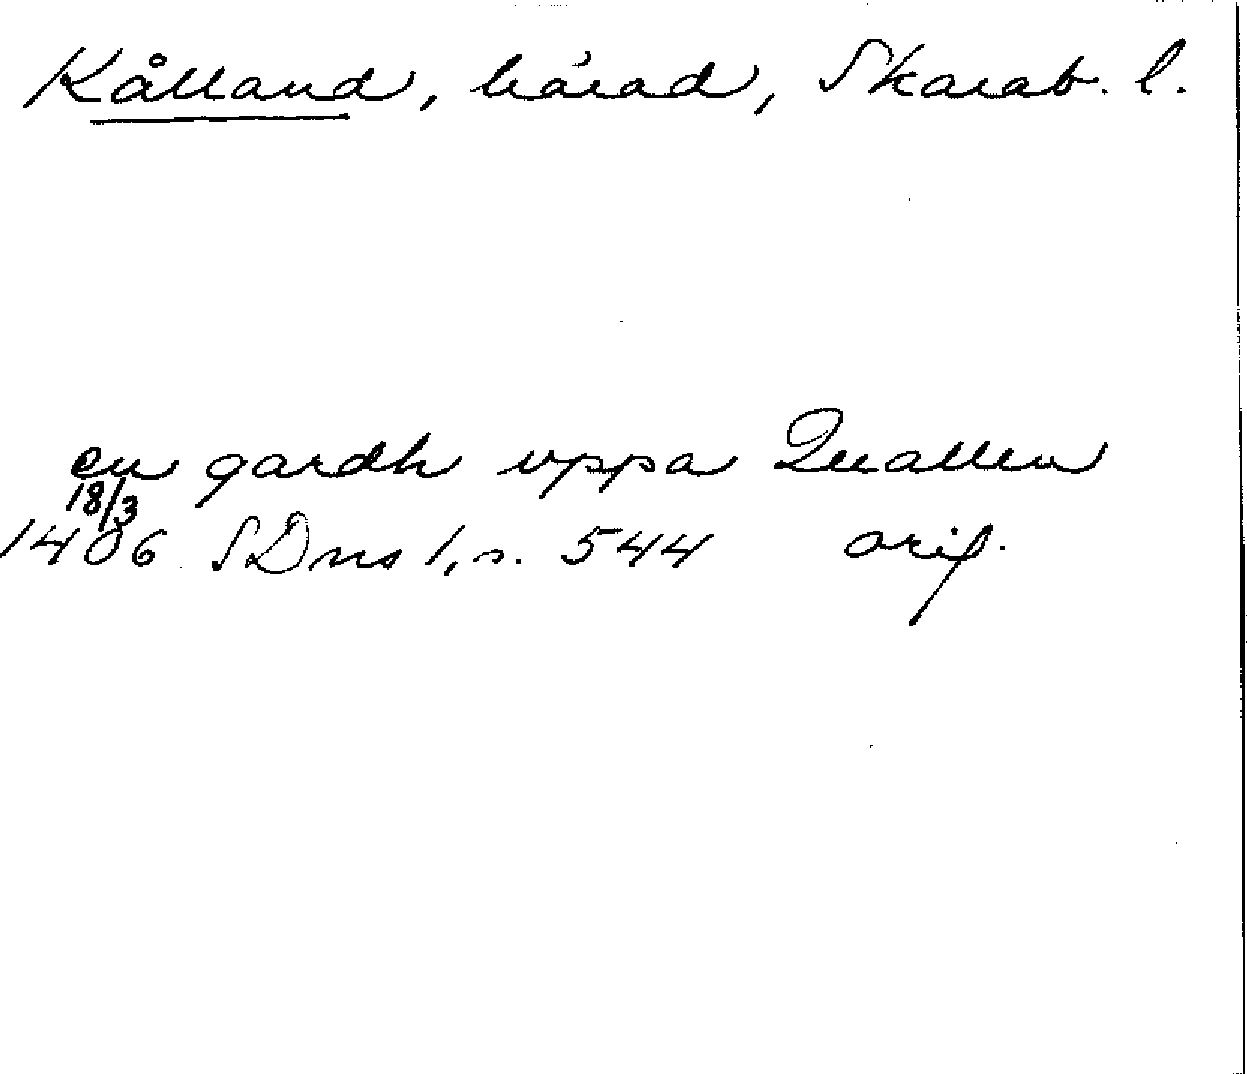 Kålland, härad, Skarab. l.
en gardh vppa Quallen
18/3
1406 SDns 1, s. 544 orig.